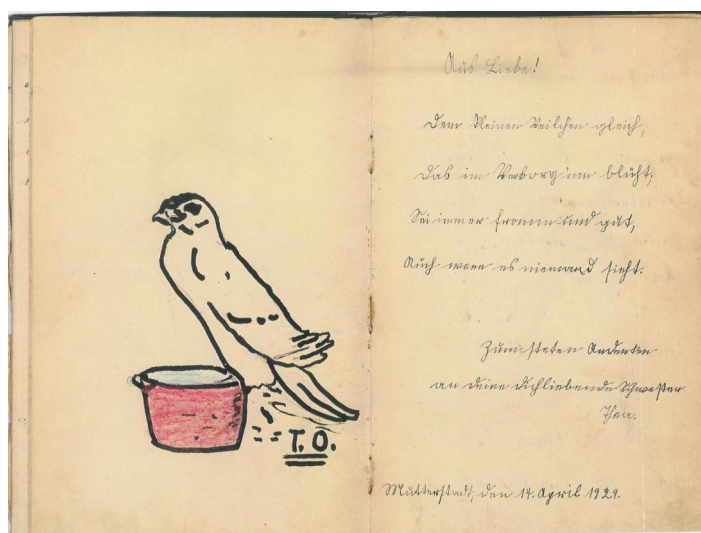 T.O.
Aus Liebe!
Dem kleinen Veilchen gleich,
Das im Verborg'nen blüht,
Sei immer fromm und gut,
Auch wenn es niemand sieht.
Zum steten Andenken
an deine Dichliebende Schwester
Thea.
Mutterstadt, den 14. April 1929.